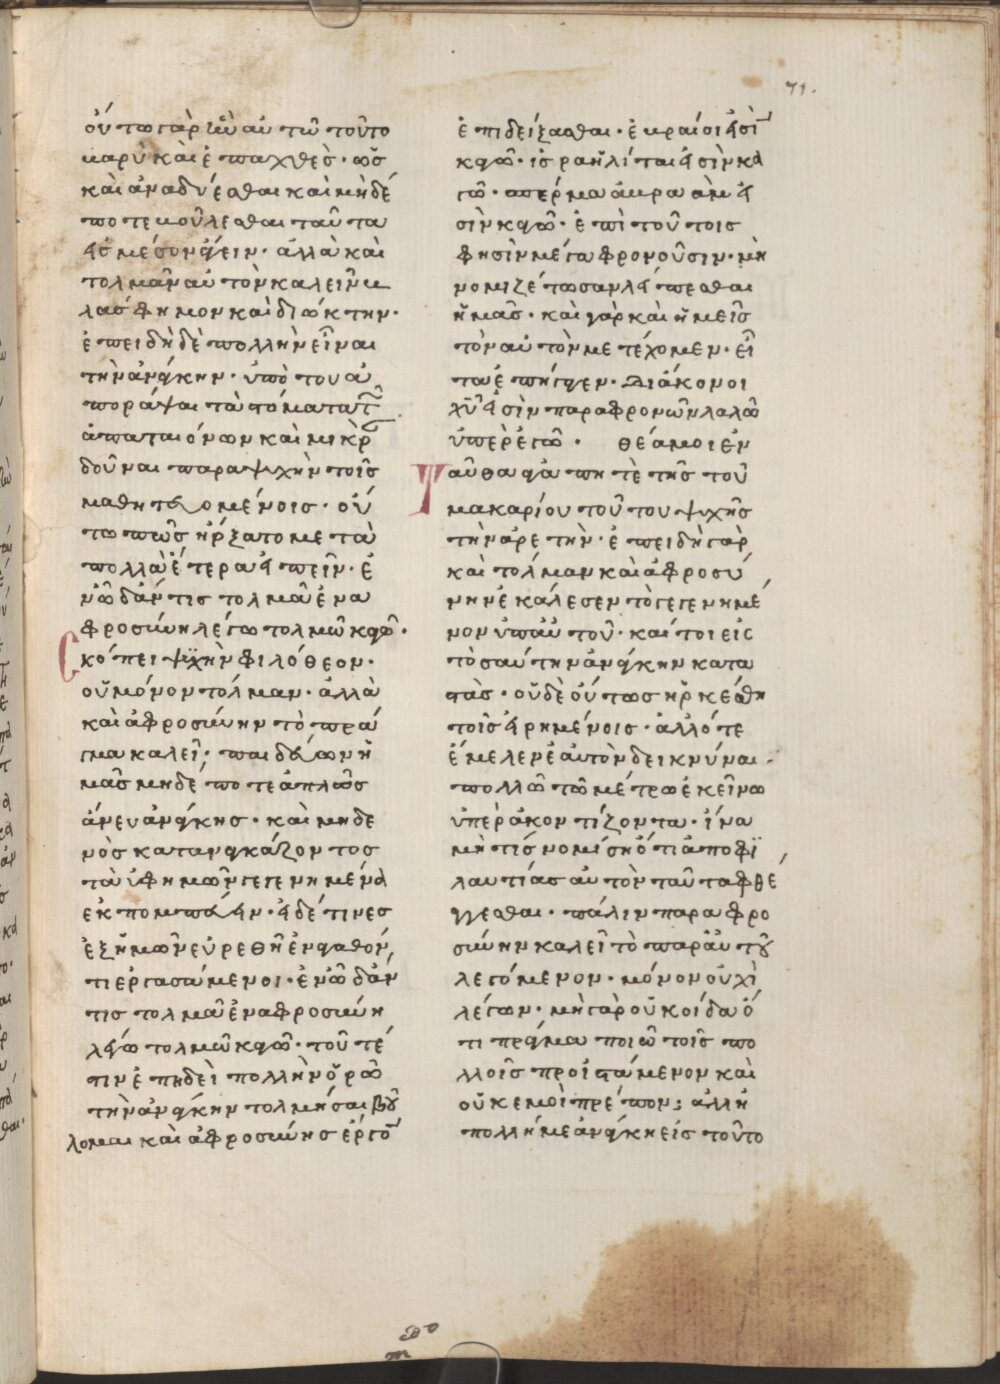 71.
οὕτω γὰρ ἦν αὐτῶ τοῦτο
βαρὺ καὶ ἐπαχθὲσ · ὡσ
καὶ ἀναδύεσθαι καὶ μηδέ
ποτε βούλεσθαι ταῦτα
εἰσ μέσον ἄγειν · ἀλλὰ καὶ
τολμᾶν αὐτὸν καλεῖν βλ
λασφημον καὶ διώκτην ·
ἐπειδὴ δὲ πολλὴν εἶναι
τὴν ἀνάγκην · ὑπὸ τοῦ ἀ
πορράψαι τὰ στόματα τ
ἀπαταιόνων καὶ μικρ
δοῦναι παραψυχὴν τοῖσ
μαθητευομένοισ · οὕ
τω πωσ ἤρξατο μετὰ
πολλὰ ἕτερα εἰπεῖν · ἐ
νῶ δ' ἄν τισ τολμᾶ ἐν α
φροσύνη λέγω τολμῶ κἀγώ ·
Σκόπει ψυχὴν φιλόθεον ·
οὐ μόνον τόλμαν · ἀλλὰ
καὶ ἀφροσύνην τὸ πρᾶ
γμα καλεῖ · παιδεύων ἡ
μᾶσ μηδέποτε ἁπλῶσ
ἄνευ ἀνάγκησ · καὶ μηδε
νὸσ καταναγκάζοντοσ
τὰ ὑφ ἡμῶν γεγενημένα
ἐκπομπεύειν · εἰ δέ τινεσ
ἐξ ἡμῶν εὑρεθῆεν ἀγαθόν
τι ἐργασάμενοι · ἐν ῶ δ' ἄν
τισ τολμᾶ ἐν αφροσύνη
λέγω τολμῶ κἀγώ · τοῦτέ
τιν ἐπηδεὶ πολλὴν ὁρῶ
τὴν ἀνάγκην τολμῆσαι βού
λομαι καὶ ἀφροσύνησ ἔργον
ἐπιδείξασθαι · ἑβραῖοι εἰσὶ
κἀγώ · ἰσραηλίται εἰσὶν κα
γώ · σπέρμα ἁβραὰμ εἰ
σὶν κἀγώ · ἐπὶ τούτοισ
φησὶν μέγα φρονοῦσιν · μὴ
νομιζέτωσαν λείπεσθαι
ἡμᾶσ · καὶ γὰρ καὶ ἡμεῖσ
τὸν αὐτὸν μετέχομεν · εἶ
τα ἐπήγαγεν · Διάκονοι
χῦ εἰσὶν παραφρονῶν λαλῶ
ὑπὲρ ἐγώ · θέα μοι ἐν
Ταῦθα ἀγαπητὲ τῆσ τοῦ
μακαρίου τούτου ψυχῆσ
τὴν ἀρετὴν · ἐπειδὴ γὰρ
καὶ τόλμαν καὶ ἀφροσύ
νην ἐκάλεσεν τὸ γεγενημέ
νον ὑπ αὐτοῦ · καί τοι εἰσ
τοσαύτην ἀνάγκην κατα
στὰσ · οὐδὲ οὕτωσ ἠρκέσθη
τοῖσ εἰρημένοισ · ἀλλ ὅτε
ἔμελεν ἑαυτὸν δεικνύναι ·
πολλῶ τῶ μέτρω ἐκείνω
ὑπὲρ ἀκοντίζοντα · ἵνα
μή τισ νομίση ὅτι ἀπὸ φι
λαυτίασ αὐτὸν ταῦτα φθέ
γγεσθαι · πάλιν παραφρο
σύνην καλεῖ τὸ παρ αὐτοῦ
λεγόμενον · μόνον οὐχὶ
λέγων · μὴ γὰρ οὐκ οἶδα ὅ
τι πρᾶγμα ποιῶ τοῖσ πο
λλοῖσ προϊστάμενον καὶ
οὐκ ἐμοὶ πρέπον ; ἀλλ ἡ
πολλή με ἀνάγκη εἰσ τοῦτο